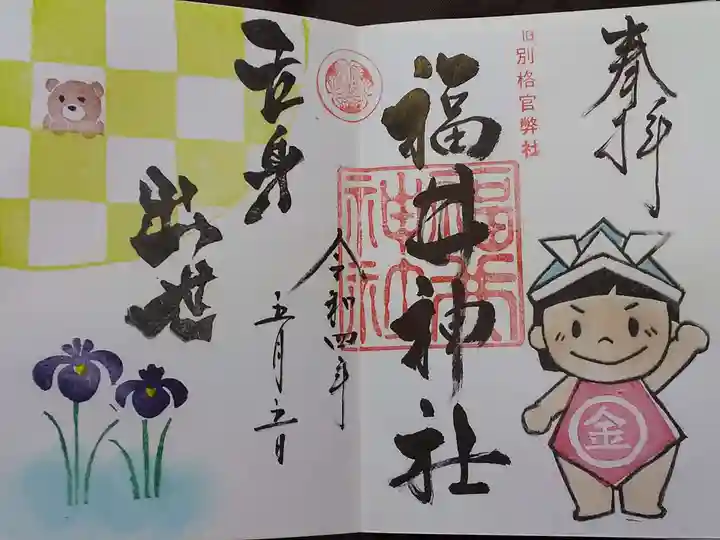 奉拝
旧別格官幣社
福井神社
福井神社
令和四年
五月五日
立身
出世
金